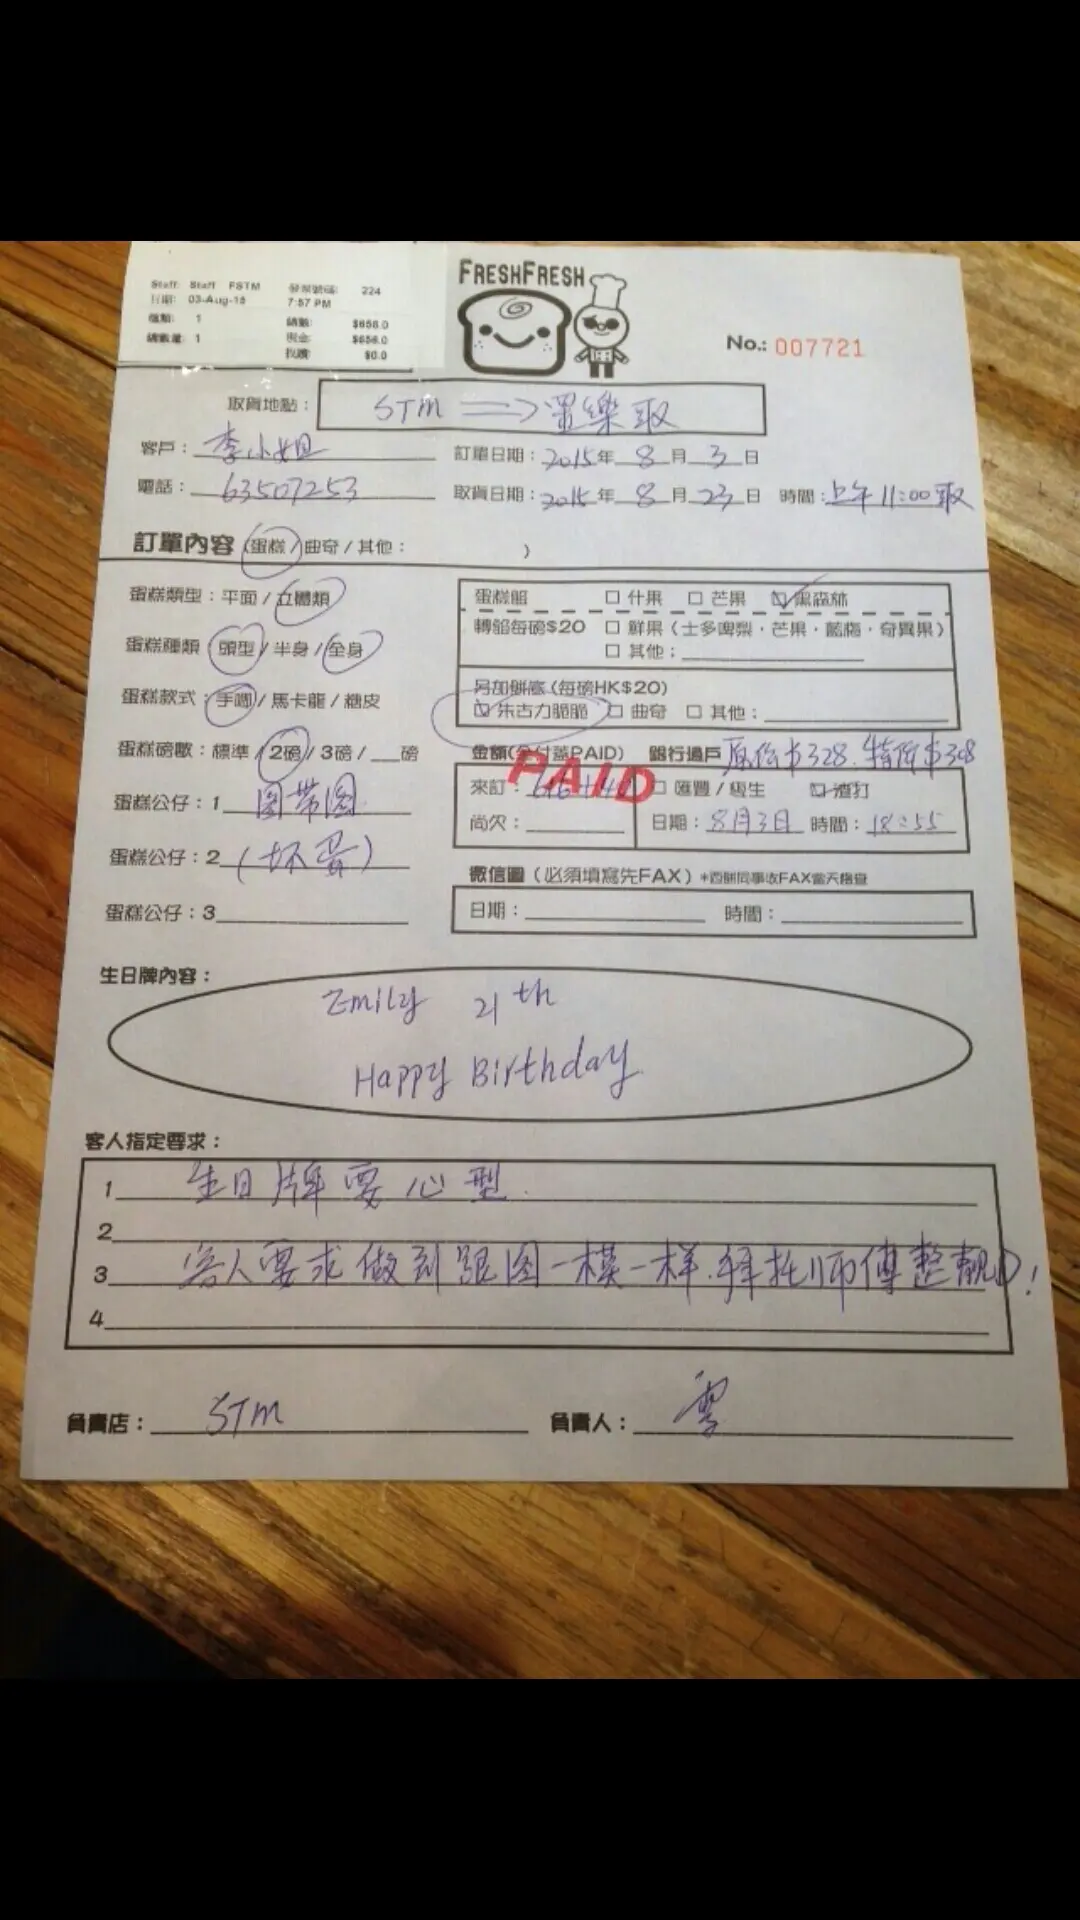 Staff: Staff FSTM 發票號碼: 224
日期: 03-Aug-15 7:57 PM
種類: 1 總數: $656.0
總數量: 1 現金: $656.0
找續: $0.0
FRESHFRESH
No.: 007721
取貨地點: STM ⇒ 置樂取
客戶: 李小姐 訂單日期: 2015年 8 月 3 日
電話: 63507253 取貨日期: 2015年 8 月 23 日 時間: 上午 11:00 取
訂單內容 (蛋糕 / 曲奇 / 其他: )
蛋糕類型: 平面 / 立體類
蛋糕餡 □ 什果 □ 芒果 ☑ 黑森林
轉餡每磅$20 □ 鮮果 (士多啤梨·芒果·藍梅·奇異果)
□ 其他:
蛋糕種類 頭型 / 半身 / 全身
另加餅底 (每磅HK$20)
☑ 朱古力脆脆 □ 曲奇 □ 其他:
蛋糕款式: 手唧 / 馬卡龍 / 糖皮
蛋糕磅數: 標準 / 2磅 / 3磅 / 磅
金額(全付蓋PAID) 銀行過戶 原价$328. 特价$308
PAID
來訂: 616+40 □ 匯豐 / 恆生 ☑ 渣打
尚欠: 日期: 8月3日 時間: 18:55
蛋糕公仔: 1 圖帶圖
蛋糕公仔: 2 (坏蛋)
蛋糕公仔: 3
微信圖 (必須填寫先FAX) *西餅同事收FAX當天檢查
日期: 時間:
生日牌內容:
Emily 21th
Happy Birthday
客人指定要求:
1 生日牌要心型.
2
3 客人要求做到跟图一模一样.拜托师傅整靚D!
4
負責店: STM 負責人: